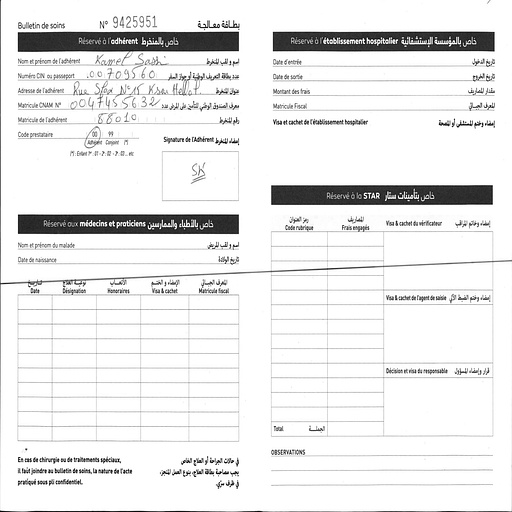 Bulletin de soins N° 9425951 بطاقة معالجة
Réservé à l'adhérent خاص بالمنخرط
Nom et prénom de l'adhérent Kamel Sassi اسم و لقب المنخرط
Numéro CIN ou passeport 00709560 عدد بطاقة التعريف الوطنية أو جواز السفر
Adresse de l'adhérent Rue Sfax N°15 Ksar Hellal عنوان المنخرط
Matricule CNAM N° 0047455632 معرف الصندوق الوطني للتأمين على المرض عدد
Matricule de l'adhérent 88010 رقم المنخرط
Code prestataire 00 99 Signature de l'Adhérent إمضاء المنخرط
Adhérent Conjoint (*)
(*) : Enfant 1er : 01 - 2e : 02 - 3e : 03 ... etc
SK
Réservé aux médecins et praticiens خاص بالأطباء والممارسين
Nom et prénom du malade اسم و لقب المريض
Date de naissance تاريخ الولادة
تاريخ نوعية العلاج الأتعاب الإمضاء و الختم المعرف الجبائي
Date Désignation Honoraires Visa & cachet Matricule fiscal
En cas de chirurgie ou de traitements spéciaux,
il faut joindre au bulletin de soins, la nature de l'acte
pratiqué sous pli confidentiel.
في حالات الجراحة أو العلاج الخاص
يجب مصاحبة بطاقة العلاج، بنوع العمل المنجز،
في ظرف سري.
Réservé à l'établissement hospitalier خاص بالمؤسسة الإستشفائية
Date d'entrée تاريخ الدخول
Date de sortie تاريخ الخروج
Montant des frais مقدار المصاريف
Matricule Fiscal المعرف الجبائي
Visa et cachet de l'établissement hospitalier إمضاء وختم المستشفى أو المصحة
Réservé à la STAR خاص بتأمينات ستار
رمز العنوان المصاريف
Code rubrique Frais engagés
Visa & cachet du vérificateur إمضاء وخاتم المراقب
Visa & cachet de l'agent de saisie إمضاء وختم الضبط الآلي
Décision et visa du responsable قرار وإمضاء المسؤول
Total الجملة
OBSERVATIONS